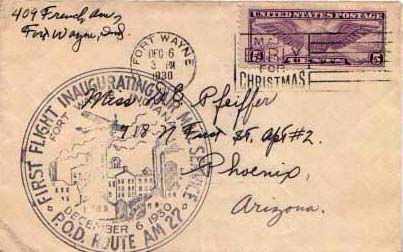 409 French Ave,
Fort Wayne, Ind.
FORT WAYNE
DEC 6
3 PM
1930
MAIL
EARLY
FOR
CHRISTMAS
UNITED STATES POSTAGE
5 5
FIRST FLIGHT INAUGURATING AIR MAIL SERVICE
FORT WAYNE INDIANA
DECEMBER 6 1930
P.O.D. ROUTE AM 27
Miss Pfeiffer
718 N First St. Apt #2.
Phoenix,
Arizona.